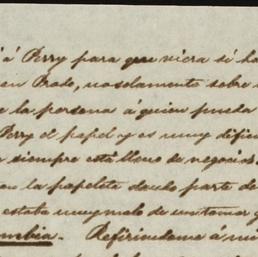 á Perry para que viera si ha
en Prado, no solamente sobre
e la persona á quien pueda
Perry el papel y es muy difici
siempre está lleno de negocios
la papeleta dando parte de
estaba muy malo de un tumor y
mbia. Refiriendome á mi